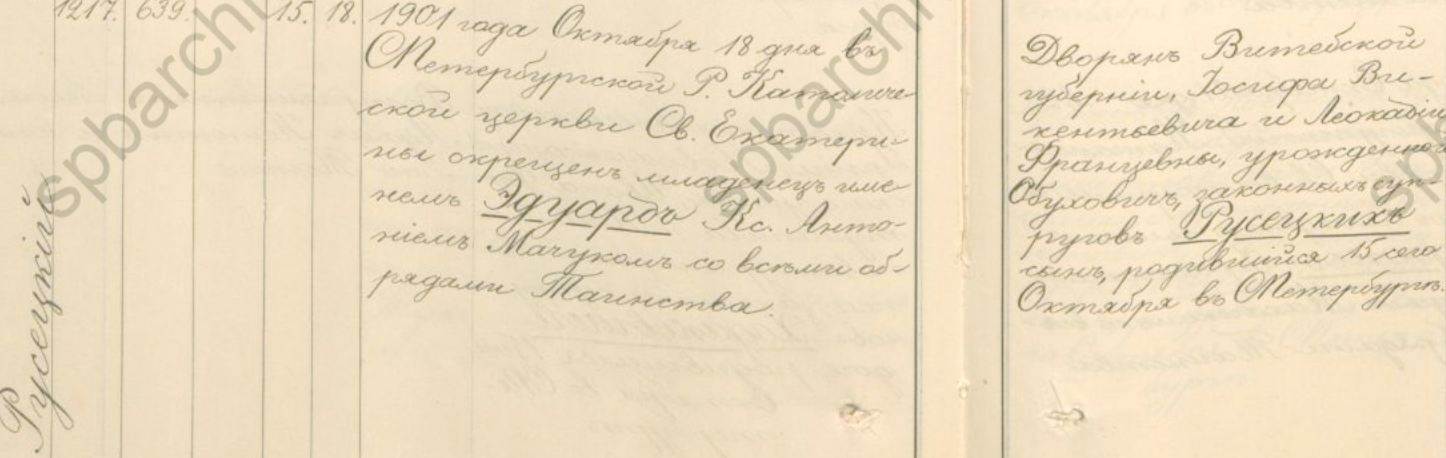 1217. 639. 15. 18.
Русецкій
1901 года Октября 18 дня въ
СПетербургской Р. Католиче-
ской церкви Св. Екатери-
ны окрещенъ младенецъ име-
немъ Эдуардъ Кс. Анто-
ніемъ Мачукомъ со всѣми об-
рядами Таинства.
Дворянъ Витебской
губерніи, Іосифа Ви-
кентьевича и Леокадіи
Францевны, урожденной
Обуховичъ, законныхъ суп-
руговъ Русецкихъ
сынъ, родившійся 15 сего
Октября въ СПетербургѣ.
spbarchi
spbarchi
sp